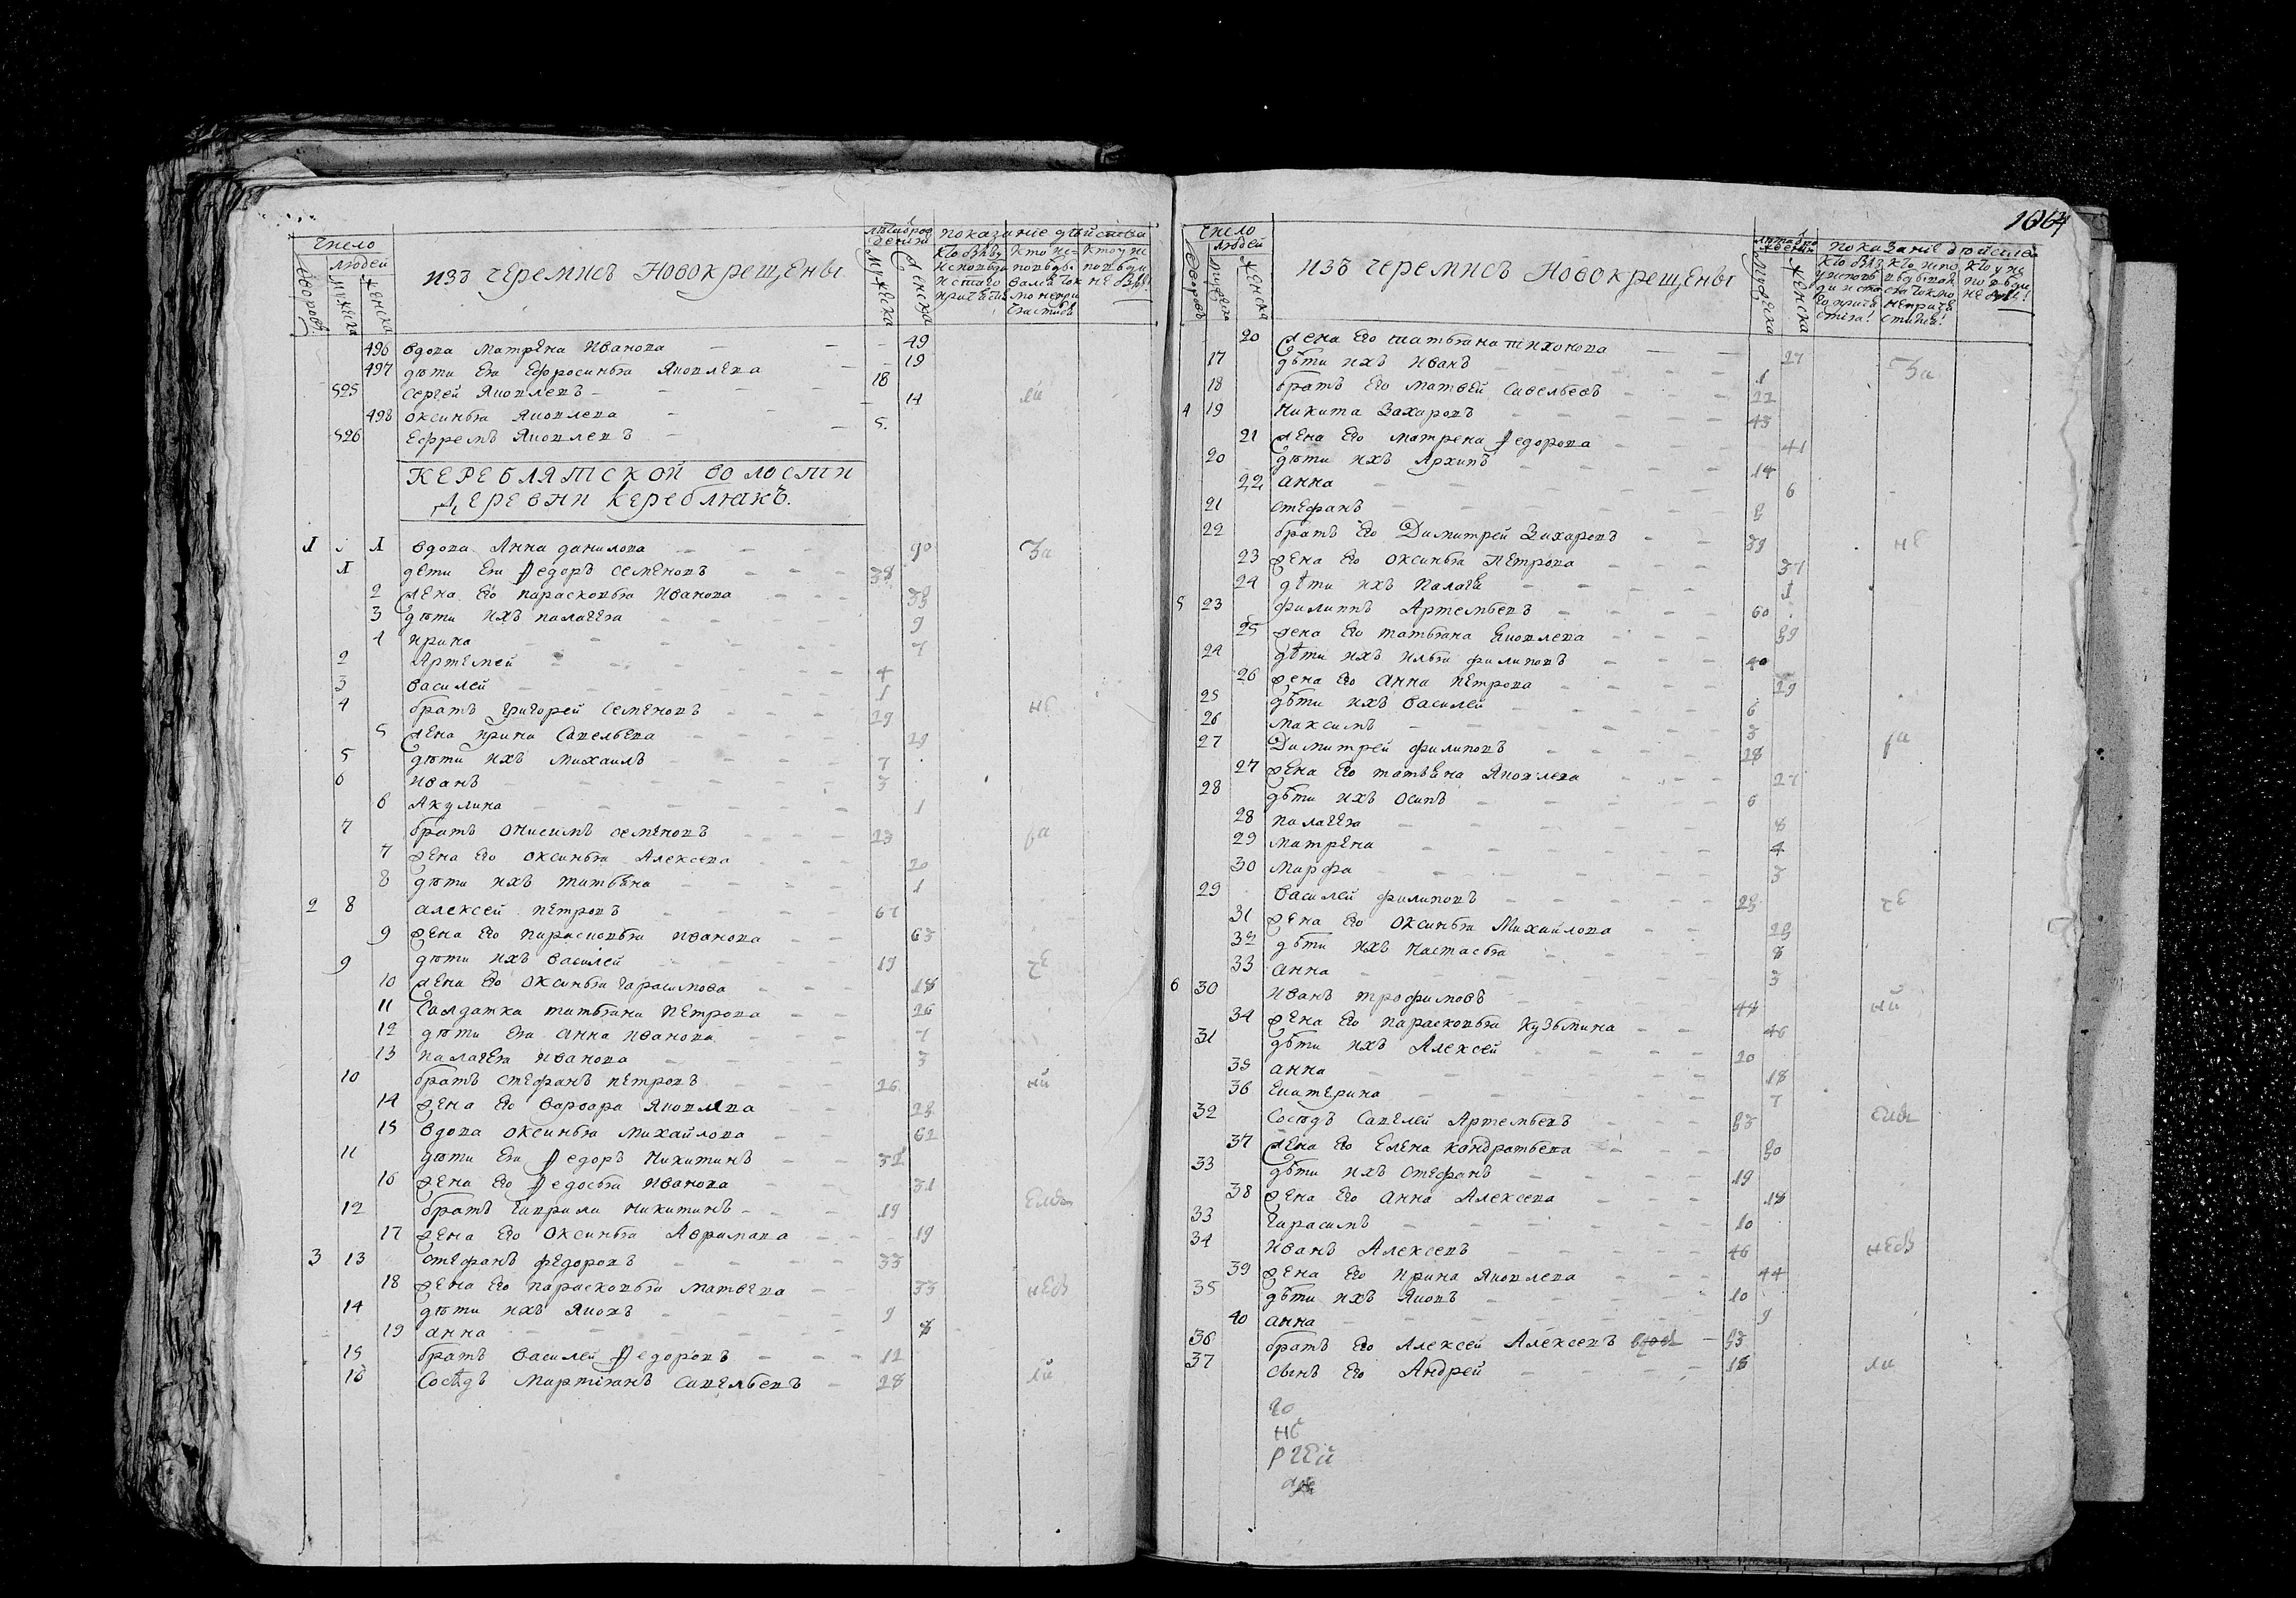 Число
людей
дворовъ
мужеска
женска
изъ черемисъ Новокрещены
мужеска
женска
показание действа
496 вдова Матрена Иванова 49
497 дѣти Ея Ефросинья Яковлева 19
525 Сергей Яковлевъ 18
498 Оксинья Яковлева 14
526 Ефремъ Яковлевъ 5
КЕРЕБЛЯТСКОЙ волости
Деревни Кереблякъ.
1 1 вдова Анна данилова 90 За
1 дети Ея Федоръ Семеновъ 38
2 жена Его парасковья Иванова
3 дѣти ихъ палагея 9
4 Ирина 7
2 Артемей 4
3 Василей 1
4 братъ Григорей Семеновъ 29 не
5 жена Ирина Савельева 29
5 дѣти ихъ Михаилъ 7
6 Иванъ 3
6 Акулина 1
7 братъ Онисимъ Семеновъ 23
7 жена Его Оксинья Алексева 20
8 дѣти ихъ татьяна 1
2 8 алексей петровъ 67
9 жена Его парасковья Иванова 63
9 дѣти ихъ Василей 19
10 жена Его Оксинья Гарасимова 18
11 Салдатка татьяна петрова 26
12 дѣти Ея анна Иванова 7
13 палагея Иванова 3
10 братъ Стефанъ петровъ 26
14 жена Его Варвара Яковлева 28
15 вдова Оксинья Михайлова 62
11 дѣти Ея Федоръ Никитинъ 32
16 жена Его Федосья Иванова 31
12 братъ Гаврила Никитинъ 19
17 жена Его Оксинья Аврамава 19
3 13 Стефанъ Федоровъ 33
18 жена Его параскопья Матвева 33
14 дѣти ихъ Яковъ 9
19 анна 8
15 братъ Василей Федоровъ 12
16 Сосѣдъ Мартіянъ Савельевъ 28
Число
людей
дворовъ
мужеска
женска
изъ черемисъ Новокрещены
мужеска
женска
показание действа
20 жена Его татьяна тихонова 27
17 дѣти ихъ Иванъ 1 За
18 братъ Его Матвей Савельевъ 22
4 19 Никита Захаровъ 43
21 жена Его Матрена Федорова 41
20 дѣти ихъ Архипъ 14
22 анна 6
21 Стефанъ
22 братъ Его Димитрей Захаровъ 39 не
23 жена Его Оксинья Петрова 37
24 дѣти ихъ Палаге 1
5 23 филиппъ Артемьевъ 60
25 жена Его татьяна Яковлева 59
24 дѣти ихъ Илья филиповъ 40
26 жена Его анна петрова 29
25 дѣти ихъ Василей 6
26 Максимъ 3
27 Димитрей филиповъ 28
27 жена Его татьяна Яковлева 27
28 дѣти ихъ Осипъ 6
28 палагея 8
29 Матрена 4
30 Марфа 3
29 Василей филиповъ 25
31 жена Его Оксинья Михайлова 25
32 дѣти ихъ Настасья 8
33 анна 3
6 30 Иванъ трофимовъ
34 жена Его параскопья Кузьмина 46
31 дѣти ихъ Алексей 20
35 анна 18
36 Екатерина 7
32 Сосѣдъ Савелей Артемьевъ 53
37 жена Его Елена Кондратьева 50
33 дѣти ихъ Стефанъ 19
38 жена Его анна Алексева 18
33 Гарасимъ 10
34 Иванъ Алексеевъ 46
39 жена Его Ирина Яковлева 44
35 дѣти ихъ Яковъ 10
40 анна 9
36 братъ Его Алексей Алексевъ 53
37 сынъ Его Андрей 18